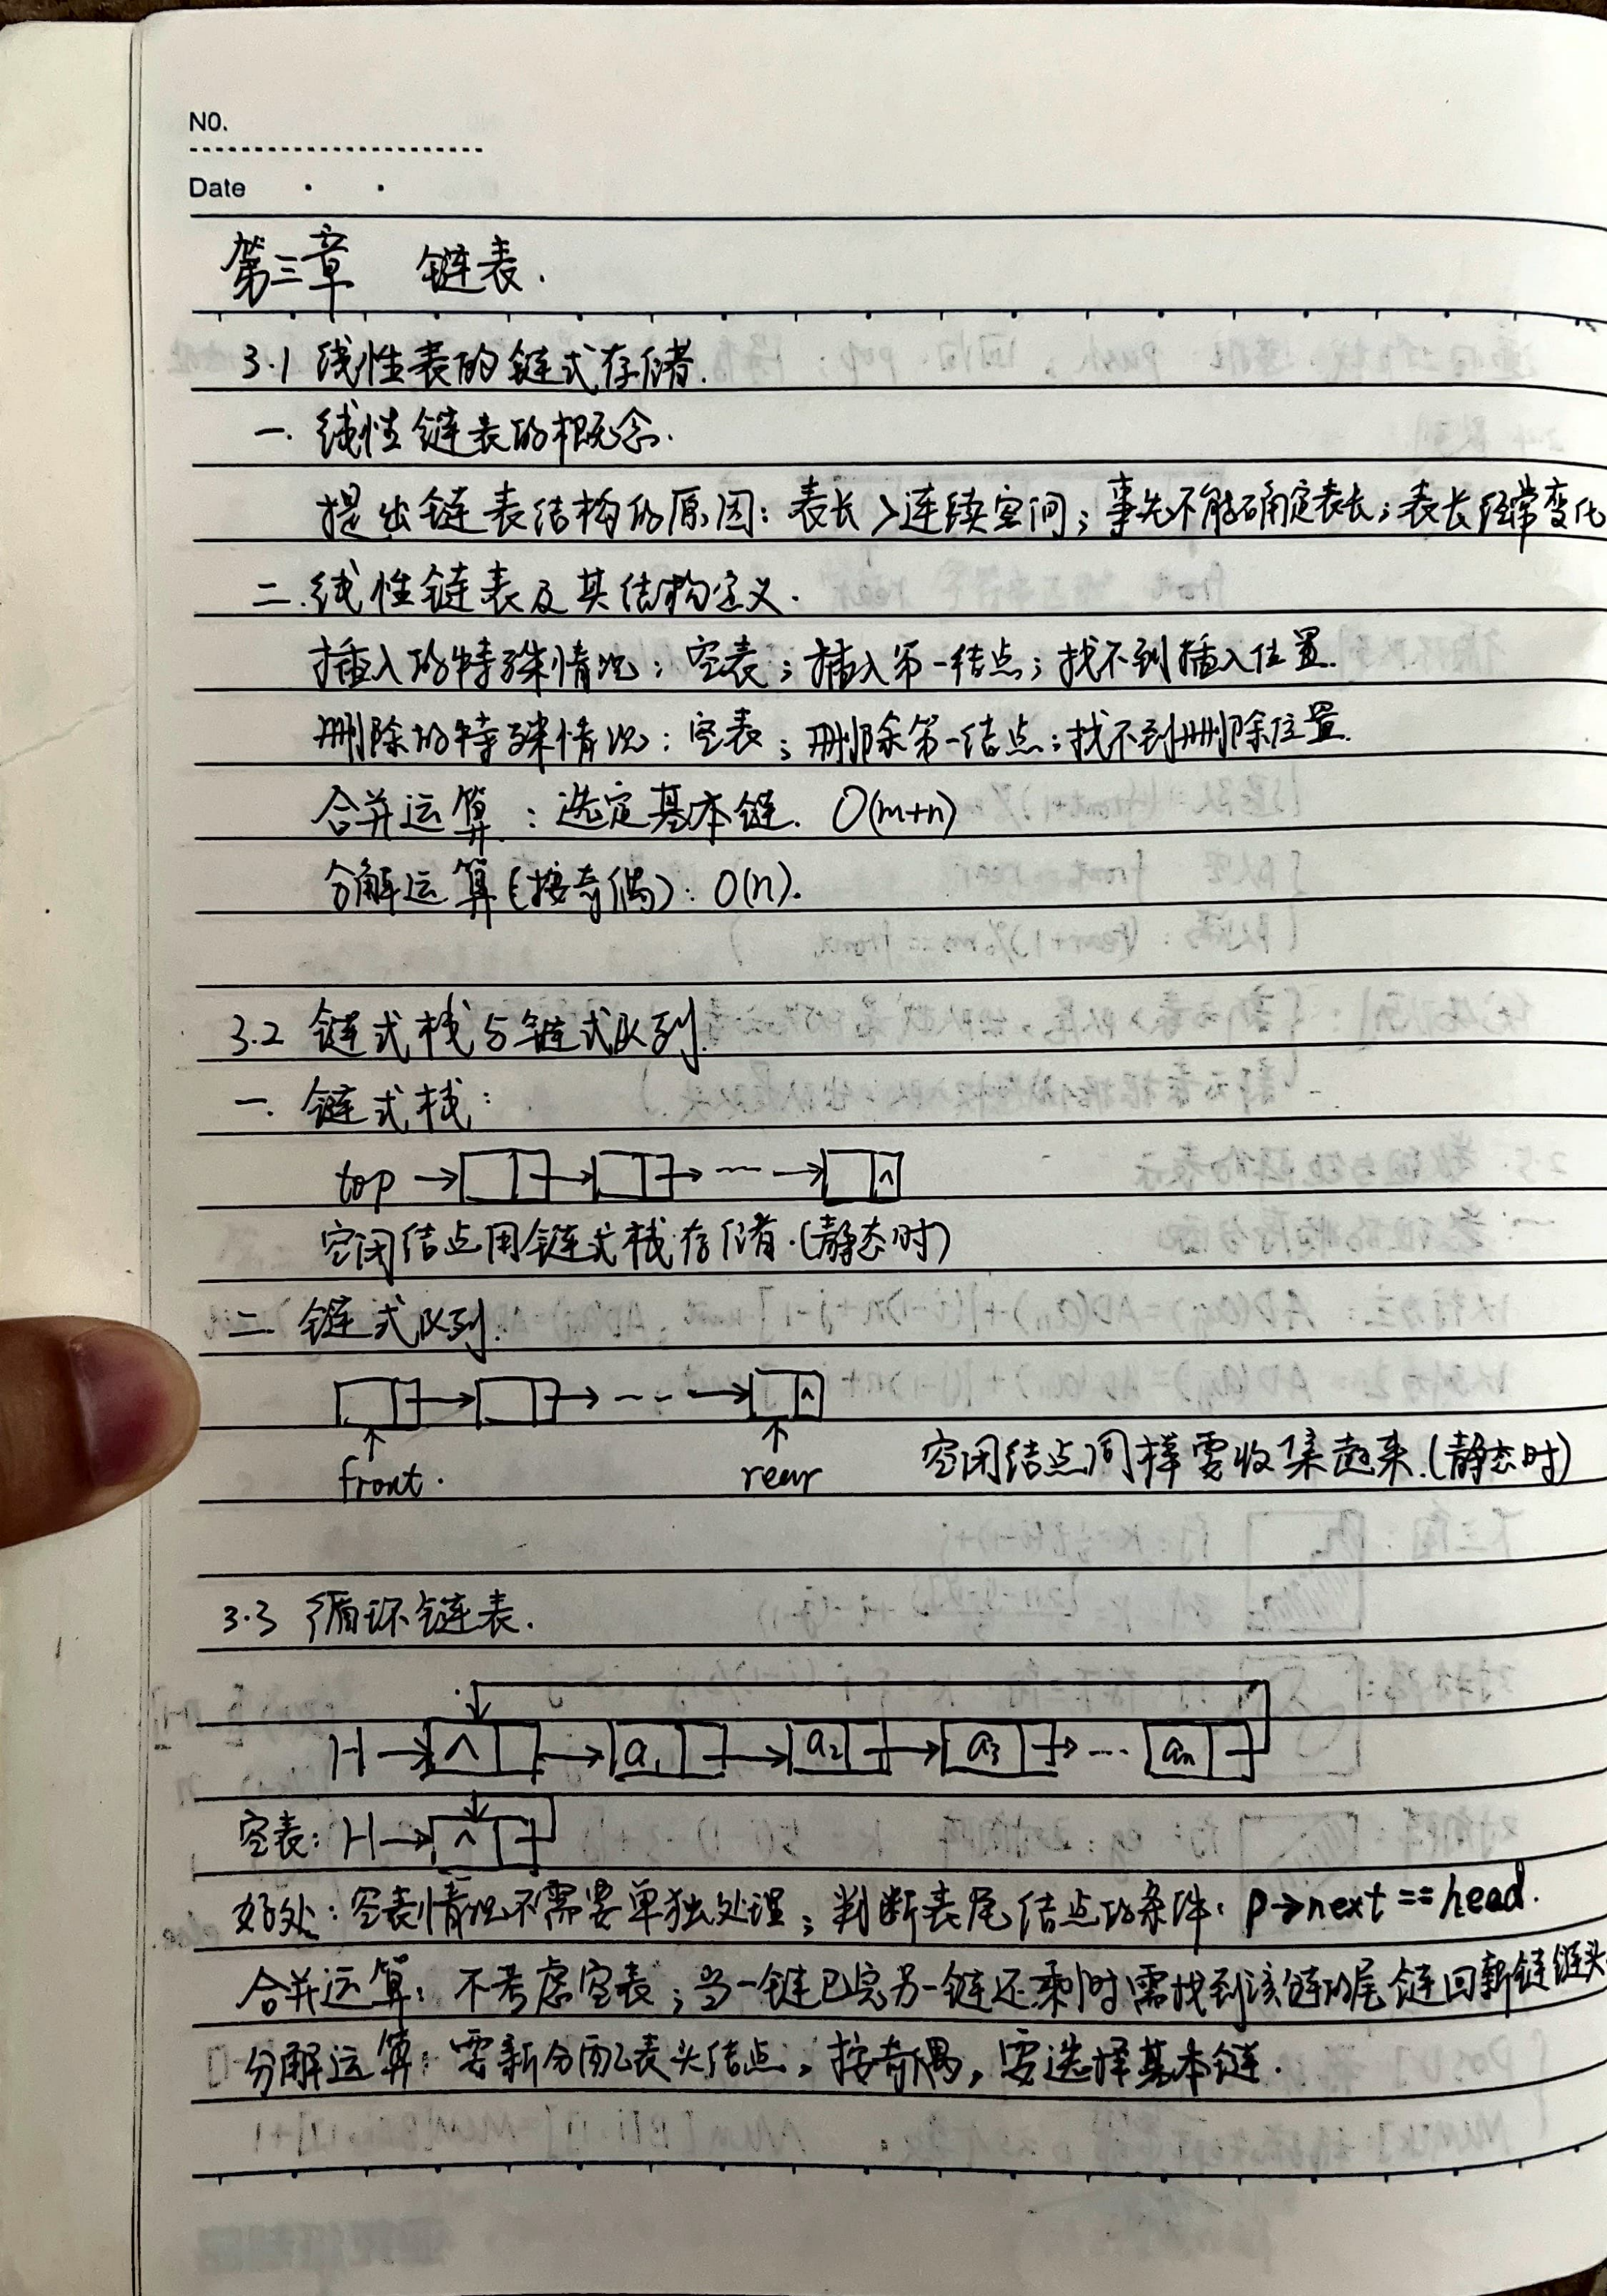 NO.
Date
第三章 链表.
3.1 线性表的链式存储.
一. 线性链表的概念.
提出链表结构的原因: 表长>连续空间; 事先不能确定表长; 表长经常变化
二. 线性链表及其结构定义.
插入的特殊情况: 空表; 插入第一结点; 找不到插入位置.
删除的特殊情况: 空表; 删除第一结点; 找不到删除位置.
合并运算: 选定基本链. O(m+n)
分解运算(按奇偶): O(n).
3.2 链式栈与链式队列.
一. 链式栈:
top → → → ---- → ∧
空闲结点用链式栈存储.(静态时)
二. 链式队列.
→ → -- -- → ∧
front. rear 空闲结点同样需收集起来.(静态时)
3.3 循环链表.
H → ∧ → a₁ → a₂ → a₃ → ... aₙ
空表: H → ∧
好处: 空表情况不需要单独处理; 判断表尾结点的条件: p→next == head.
合并运算: 不考虑空表; 当一链已完另一链还剩时需找到该链的尾链回新链链头.
分解运算: 需新分配表头结点, 按奇偶, 需选择基本链.